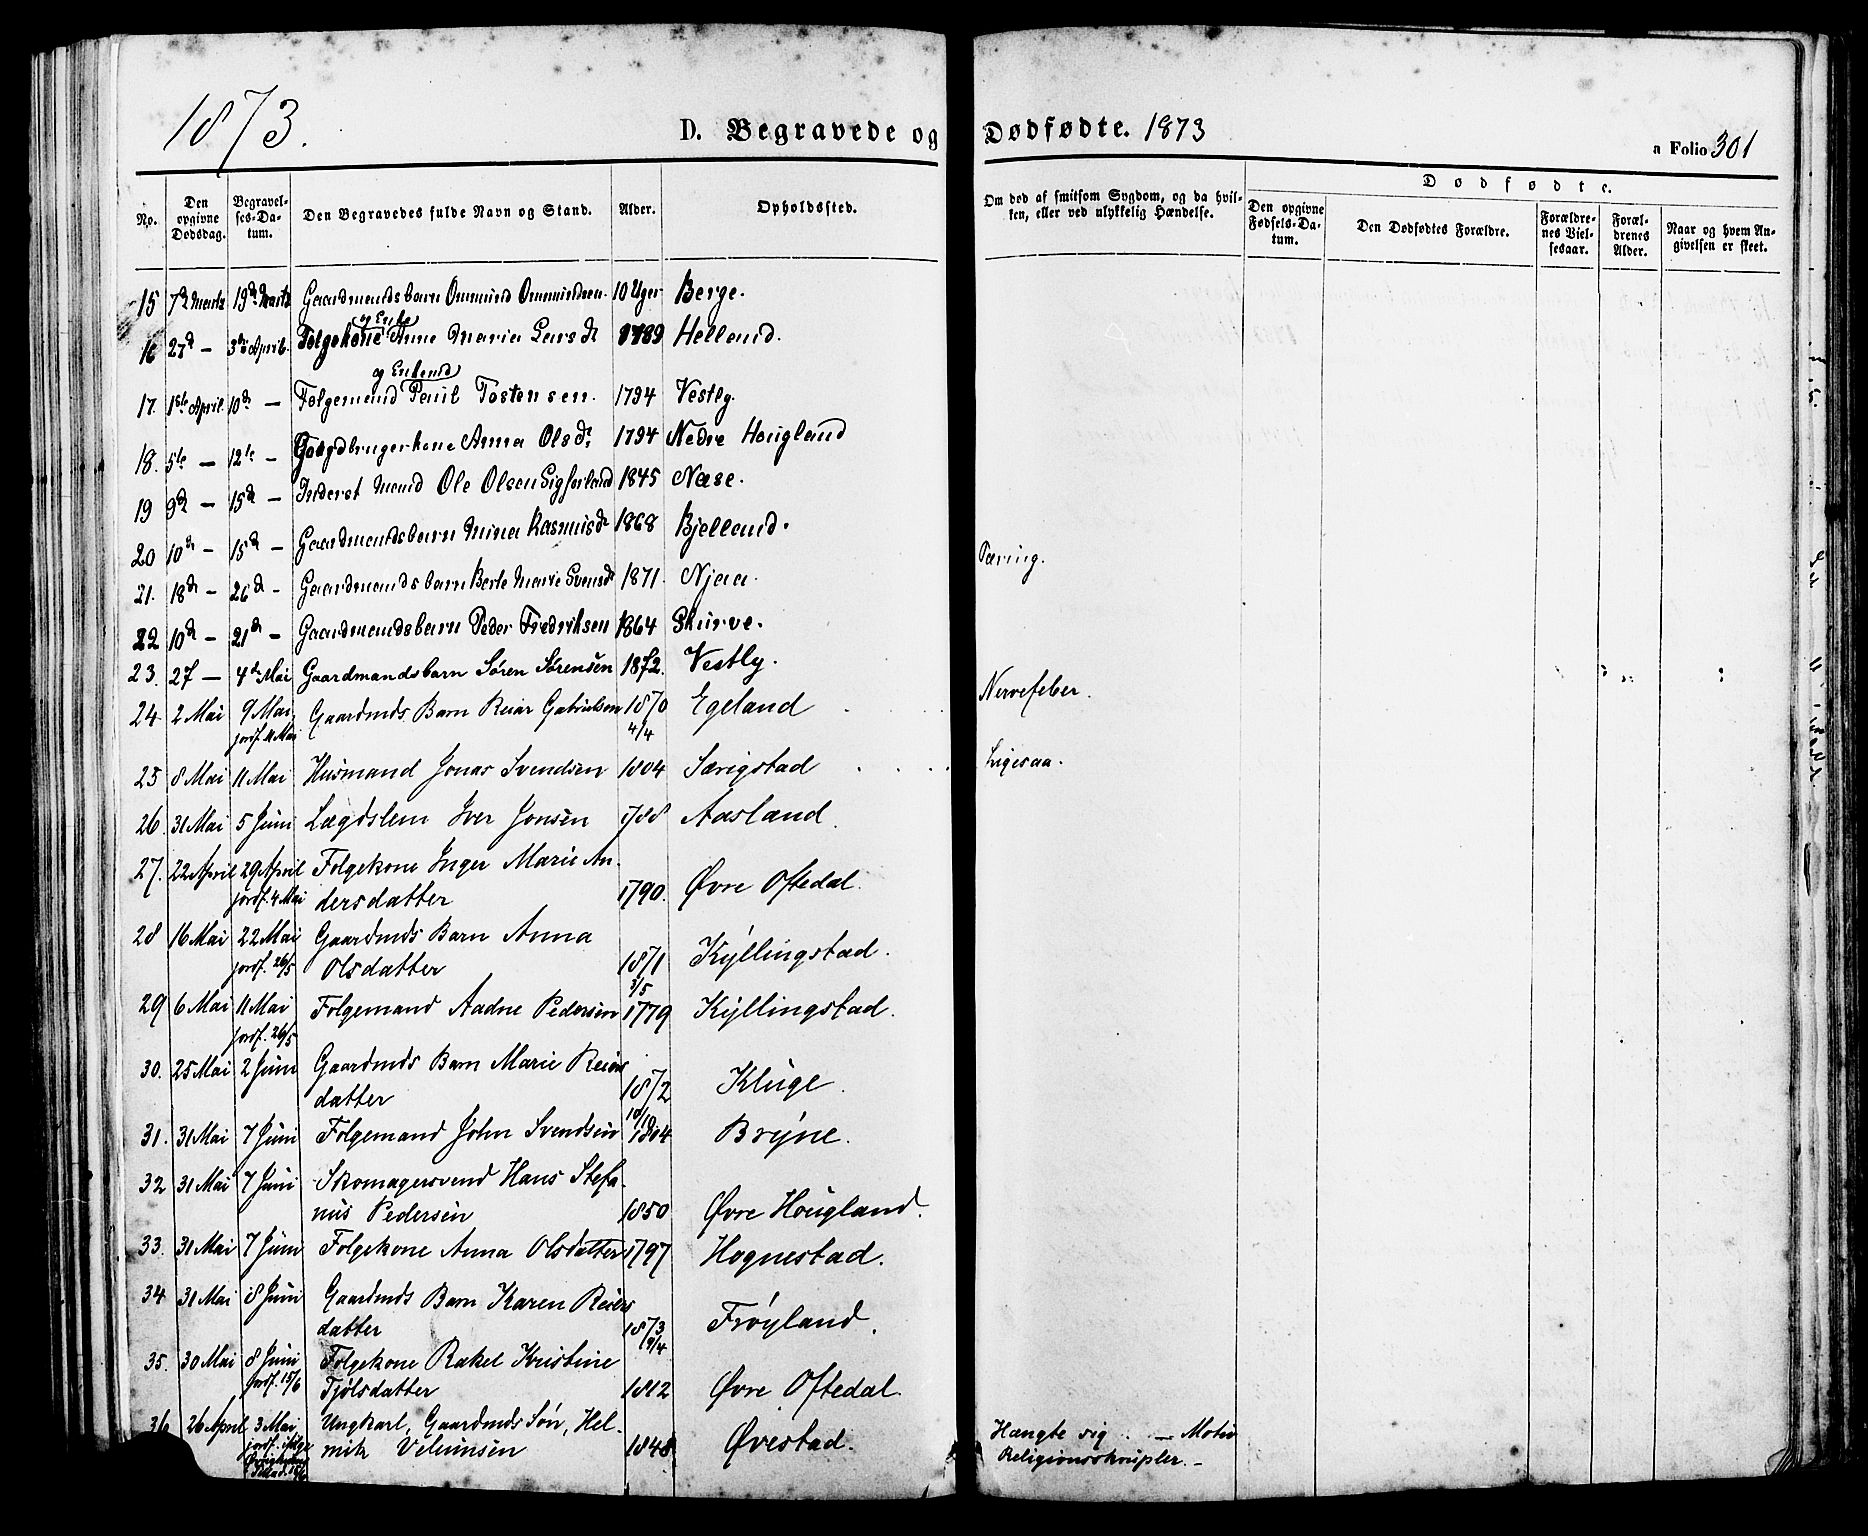 1873.
D. Begravede og Dødfødte. 1873
a Folio 301
No.
Den opgivne Dødsdag.
Begravelses-Datum.
Den Begravedes fulde Navn og Stand.
Alder.
Opholdssted.
Om død af smitsom Sygdom, og da hvilken, eller ved ulykkelig Hændelse.
Dødfødte.
Den opgivne Fødsels-Datum.
Den Dødfødtes Forældre.
Forældrenes Vielsesaar.
Forældrenes Alder.
Naar og hvem Angivelsen er skeet.
15 7d Marts 19d Marts Gaardmandsbarn Ommund Ommundsen. 10 Uger Berge.
og Enke
16 27d — 3die April. Følgekone Anne Maria Larsdr 1789 Helland.
og Enkemd
17. 1ste April. 10d — Følgemand Paul Tostensen. 1794 Vestly.
18. 5te — 12te — Gaardbrugerkone Anna Olsdr 1794 Nedre Hougland
19 9d — 15d — Inderst Mand Ole Olsen Sigferland 1845 Næse.
20 10d — 15d — Gaardmandsbarn Mina Rasmusdr 1868 Bjelland. Tæring.
21. 18d — 26d — Gaardmandsbarn Berte Marie Svensdr 1871. Njaa.
22 10d — 21d — Gaardmandsbarn Peder Fredriksen 1864 Skurve.
23. 27 — 4d Mai Gaardmandsbarn Søren Sørensen 1872. Vestly. Nervefeber.
24. 2 Mai 9 Mai Gaardmds Barn Reiar Gabrielsen 1870 Egeland
jordf. 11 Mai 4/4
25 8 Mai 11 Mai Husmand Jonas Svendsen 1804 Særigstad Ligesaa.
26. 31 Mai 5 Juni Lægdslem Iver Jonsen 1788 Aasland.
27. 22 April 29 April Følgekone Inger Marie An-
jordf. 4 Mai dersdatter 1790. Øvre Oftedal.
28 16 Mai 22 Mai Gaardmds Barn Anna
jordf. 26/5 Olsdatter 1871 Kyllingstad.
3/5
29 6 Mai 11 Mai Følgemand Aadne Pedersen 1779 Kyllingstad.
jordf. 26/5
30. 25 Mai 2 Juni Gaardmds Barn Marie Reiers
datter 1872 Kluge.
31. 31 Mai 7 Juni Følgemand John Svendsen 1804 Bryne.
32 31 Mai 7 Juni Skomagersvend Hans Stefa-
nus Pedersen 1850 Øvre Hougland.
33. 31 Mai 7 Juni Følgekone Anna Olsdatter 1797 Hognestad.
34 31 Mai 8 Juni Gaardmds Barn Karen Reiers
datter 1873 Frøyland.
35. 30 Mai 8 Juni Følgekone Rakel Kristine
jordf. 15/6 Tjølsdatter 1812 Øvre Oftedal.
36 26 April 3 Mai Ungkarl, Gaardmds Søn, Hel-
mik 1848 Øvestad. Hængte sig. — Motiv
Religionsskrupler. —